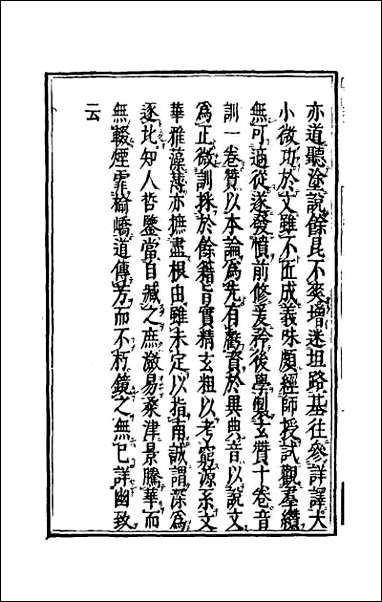 亦道聽塗說餘昆不爽增迷坦路基往參詳譯大
小徵功於文雖不匠成義味頗經師授試觀羣纘
無可適從遂發憤前修爰矜後學製玄贊十卷音
訓一卷贊以本論為先有虧資於異典音以說文
為正微訓採於餘籍旨實精玄粗以考窮源系文
華雅藻薄亦摭盡根由雖未定以指南誠謂深為
逐比知人哲鑒當自緘之庶澂易桼津景騰華而
無輟煙霏楡嶠道傳芳而不朽鏡之無已詳幽致
云